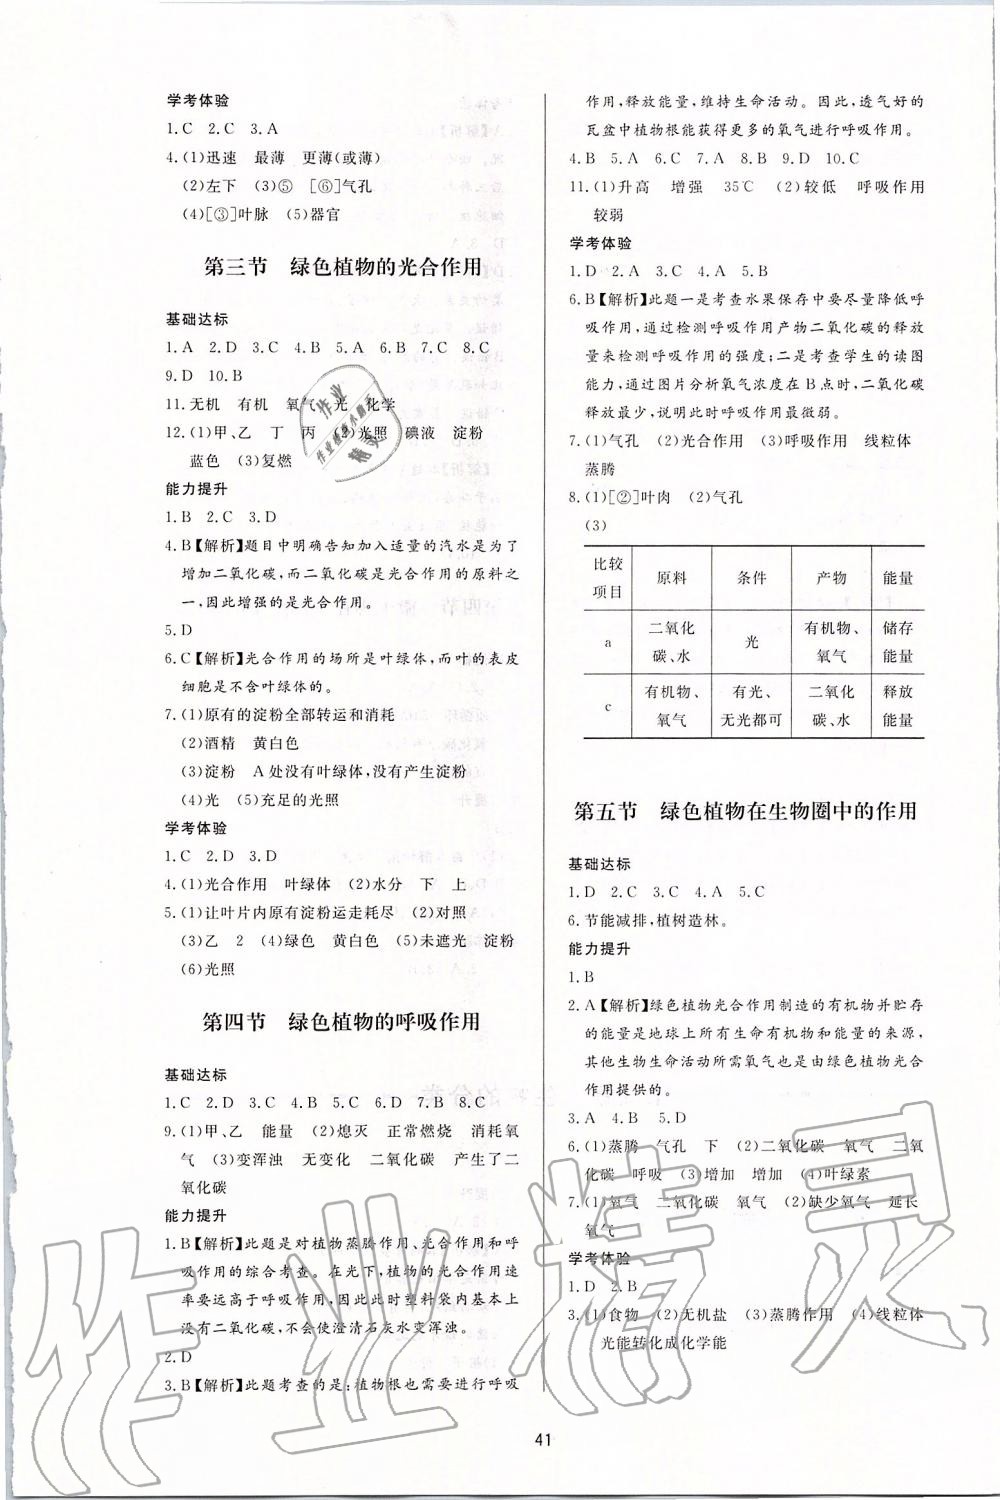 学考体验
1.C 2.C 3.A
4.(1)迅速 最薄 更薄(或薄)
(2)左下 (3)⑤ [⑥]气孔
(4)[③]叶脉 (5)器官
第三节 绿色植物的光合作用
基础达标
1.A 2.D 3.C 4.B 5.A 6.B 7.C 8.C
9.D 10.B
11.无机 有机 氧气 光 化学
12.(1)甲、乙 丁 丙 (2)光照 碘液 淀粉
蓝色 (3)复燃
能力提升
1.B 2.C 3.D
4.B【解析】题目中明确告知加入适量的汽水是为了
增加二氧化碳,而二氧化碳是光合作用的原料之
一,因此增强的是光合作用。
5.D
6.C【解析】光合作用的场所是叶绿体,而叶的表皮
细胞是不含叶绿体的。
7.(1)原有的淀粉全部转运和消耗
(2)酒精 黄白色
(3)淀粉 A处没有叶绿体,没有产生淀粉
(4)光 (5)充足的光照
学考体验
1.C 2.D 3.D
4.(1)光合作用 叶绿体 (2)水分 下 上
5.(1)让叶片内原有淀粉运走耗尽 (2)对照
(3)乙 2 (4)绿色 黄白色 (5)未遮光 淀粉
(6)光照
第四节 绿色植物的呼吸作用
基础达标
1.C 2.D 3.C 4.D 5.C 6.D 7.B 8.C
9.(1)甲、乙 能量 (2)熄灭 正常燃烧 消耗氧
气 (3)变浑浊 无变化 二氧化碳 产生了二
氧化碳
能力提升
1.B【解析】此题是对植物蒸腾作用、光合作用和呼
吸作用的综合考查。在光下,植物的光合作用速
率要远高于呼吸作用,因此此时塑料袋内基本上
没有二氧化碳,不会使澄清石灰水变浑浊。
2.D
3.B【解析】此题考查的是:植物根也需要进行呼吸
作用,释放能量,维持生命活动。因此,透气好的
瓦盆中植物根能获得更多的氧气进行呼吸作用。
4.B 5.A 6.C 7.A 8.B 9.D 10.C
11.(1)升高 增强 35℃ (2)较低 呼吸作用
较弱
学考体验
1.D 2.A 3.C 4.A 5.B
6.B【解析】此题一是考查水果保存中要尽量降低呼
吸作用,通过检测呼吸作用产物二氧化碳的释放
量来检测呼吸作用的强度;二是考查学生的读图
能力,通过图片分析氧气浓度在B点时,二氧化碳
释放最少,说明此时呼吸作用最微弱。
7.(1)气孔 (2)光合作用 (3)呼吸作用 线粒体
蒸腾
8.(1)[②]叶肉 (2)气孔
(3)
比较项目 原料 条件 产物 能量
a 二氧化碳、水 光 有机物、氧气 储存能量
c 有机物、氧气 有光、无光都可 二氧化碳、水 释放能量
第五节 绿色植物在生物圈中的作用
基础达标
1.D 2.C 3.C 4.A 5.C
6.节能减排,植树造林。
能力提升
1.B
2.A【解析】绿色植物光合作用制造的有机物并贮存
的能量是地球上所有生命有机物和能量的来源,
其他生物生命活动所需氧气也是由绿色植物光合
作用提供的。
3.A 4.B 5.D
6.(1)蒸腾 气孔 下 (2)二氧化碳 氧气 二氧
化碳 呼吸 (3)增加 增加 (4)叶绿素
7.(1)氧气 二氧化碳 氧气 (2)缺少氧气 延长
氧气
学考体验
1.D 2.B
3.(1)食物 (2)无机盐 (3)蒸腾作用 (4)线粒体
光能转化成化学能
41
作业精灵